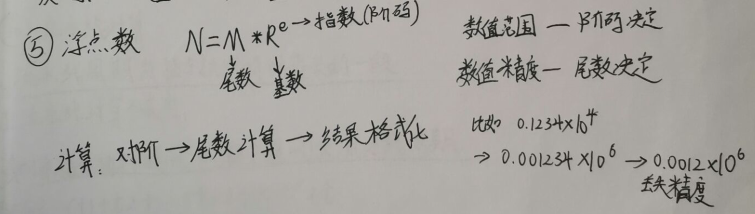 ⑤ 浮点数 N=M*R^e→指数(阶码)
↓尾数 ↓基数
数值范围 — 阶码决定
数值精度 — 尾数决定
计算: 对阶→尾数计算→结果格式化
比如 0.1234×10^4
→ 0.001234×10^6 → 0.0012×10^6
丢失精度